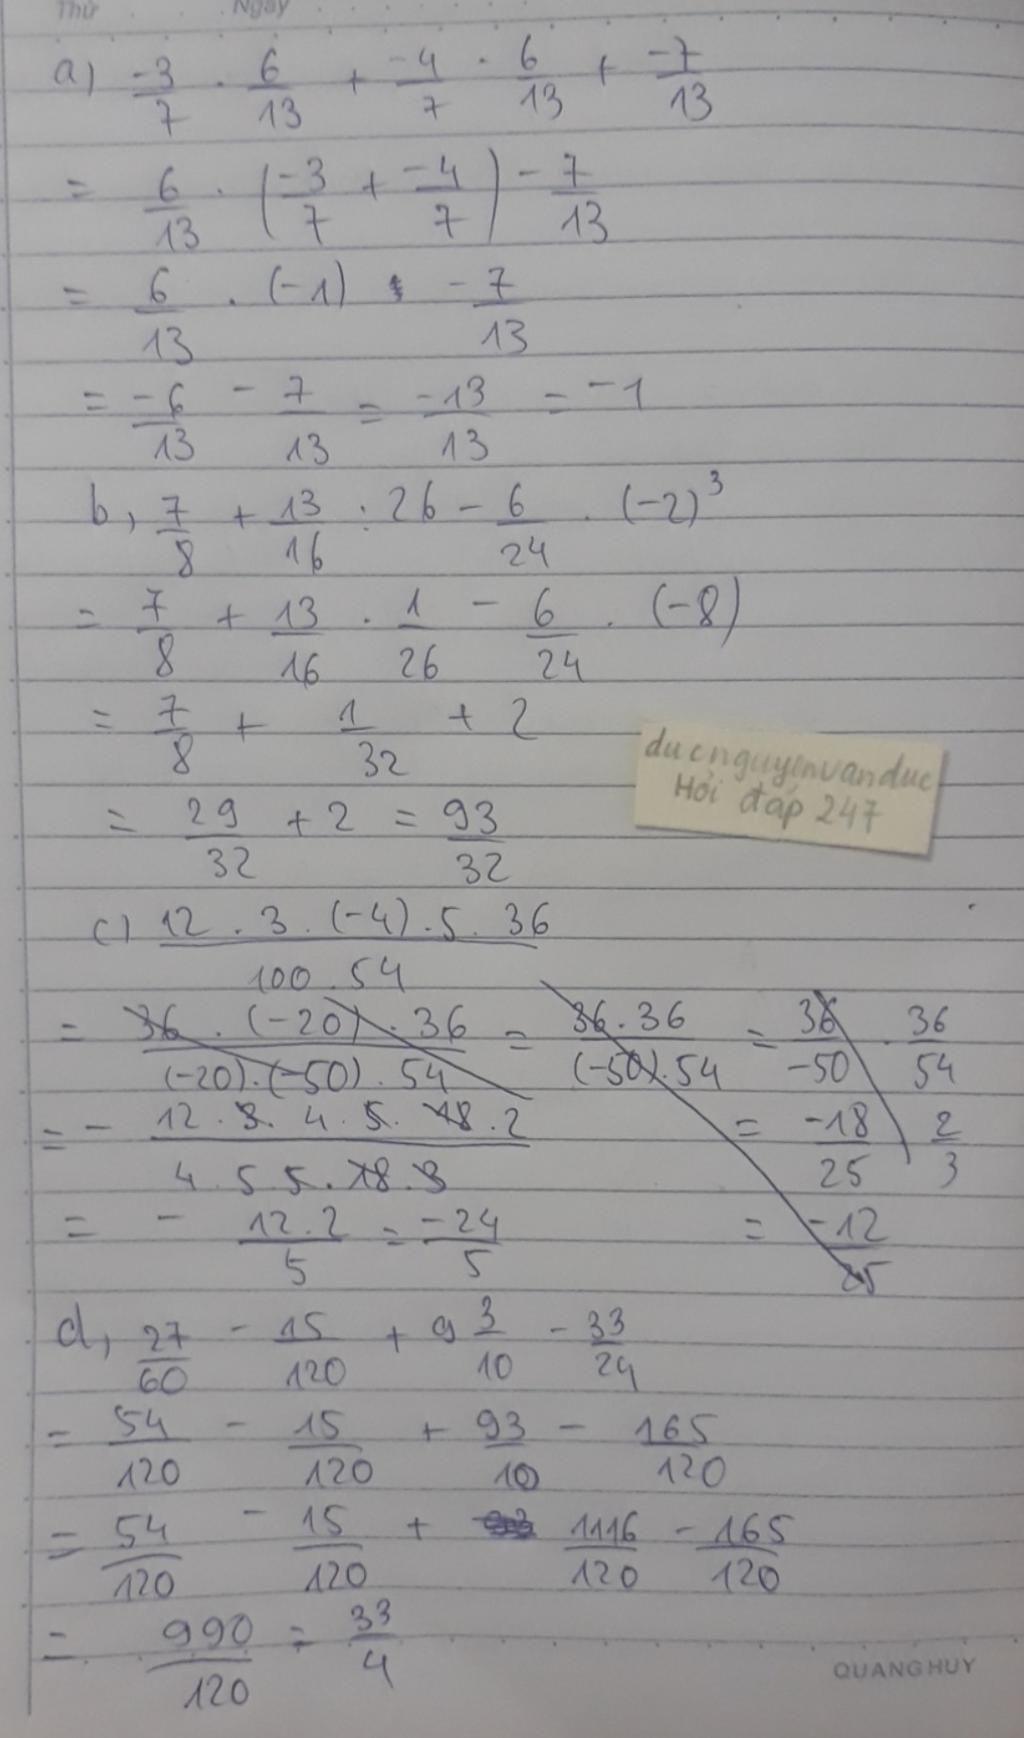 Thứ Ngày
a) -3/7 . 6/13 + -4/7 . 6/13 + -7/13
= 6/13 . (-3/7 + -4/7) - 7/13
= 6/13 . (-1) - 7/13
= -6/13 - 7/13 = -13/13 = -1
b, 7/8 + 13/16 : 26 - 6/24 . (-2)³
= 7/8 + 13/16 . 1/26 - 6/24 . (-8)
= 7/8 + 1/32 + 2
ducnguyenvanduc
Hỏi đáp 247
= 29/32 + 2 = 93/32
c) 12 . 3 . (-4) . 5 . 36 / 100 . 54
= 36 . (-20) . 36 / (-20) . (-50) . 54 = 36 . 36 / (-50) . 54 = 36/-50 . 36/54
= - 12 . 3 . 4 . 5 . 18 . 2 / 4 . 5 5 . 18 . 3 = -18/25 2/3
= - 12 . 2 / 5 = -24/5 = -12/25
d, 27/60 - 15/120 + 9 3/10 - 33/24
= 54/120 - 15/120 + 93/10 - 165/120
= 54/120 - 15/120 + 1116/120 - 165/120
= 990/120 = 33/4
QUANG HUY